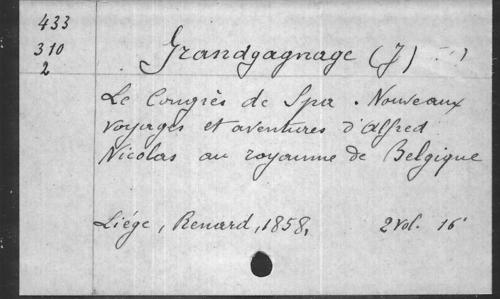 433
310
2
Grandgagnage (J)
Le Congrès de Spa. Nouveaux
voyages et aventures d'Alfred
Nicolas au royaume de Belgique
Liége, Renard, 1858, 2 vol. 16°